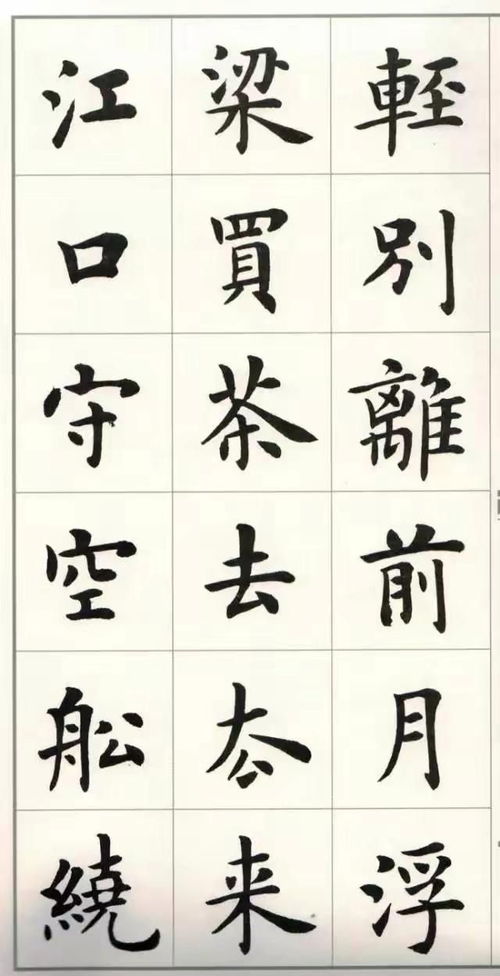 輕別離前月浮
梁買茶去厺来
江口守空舩繞